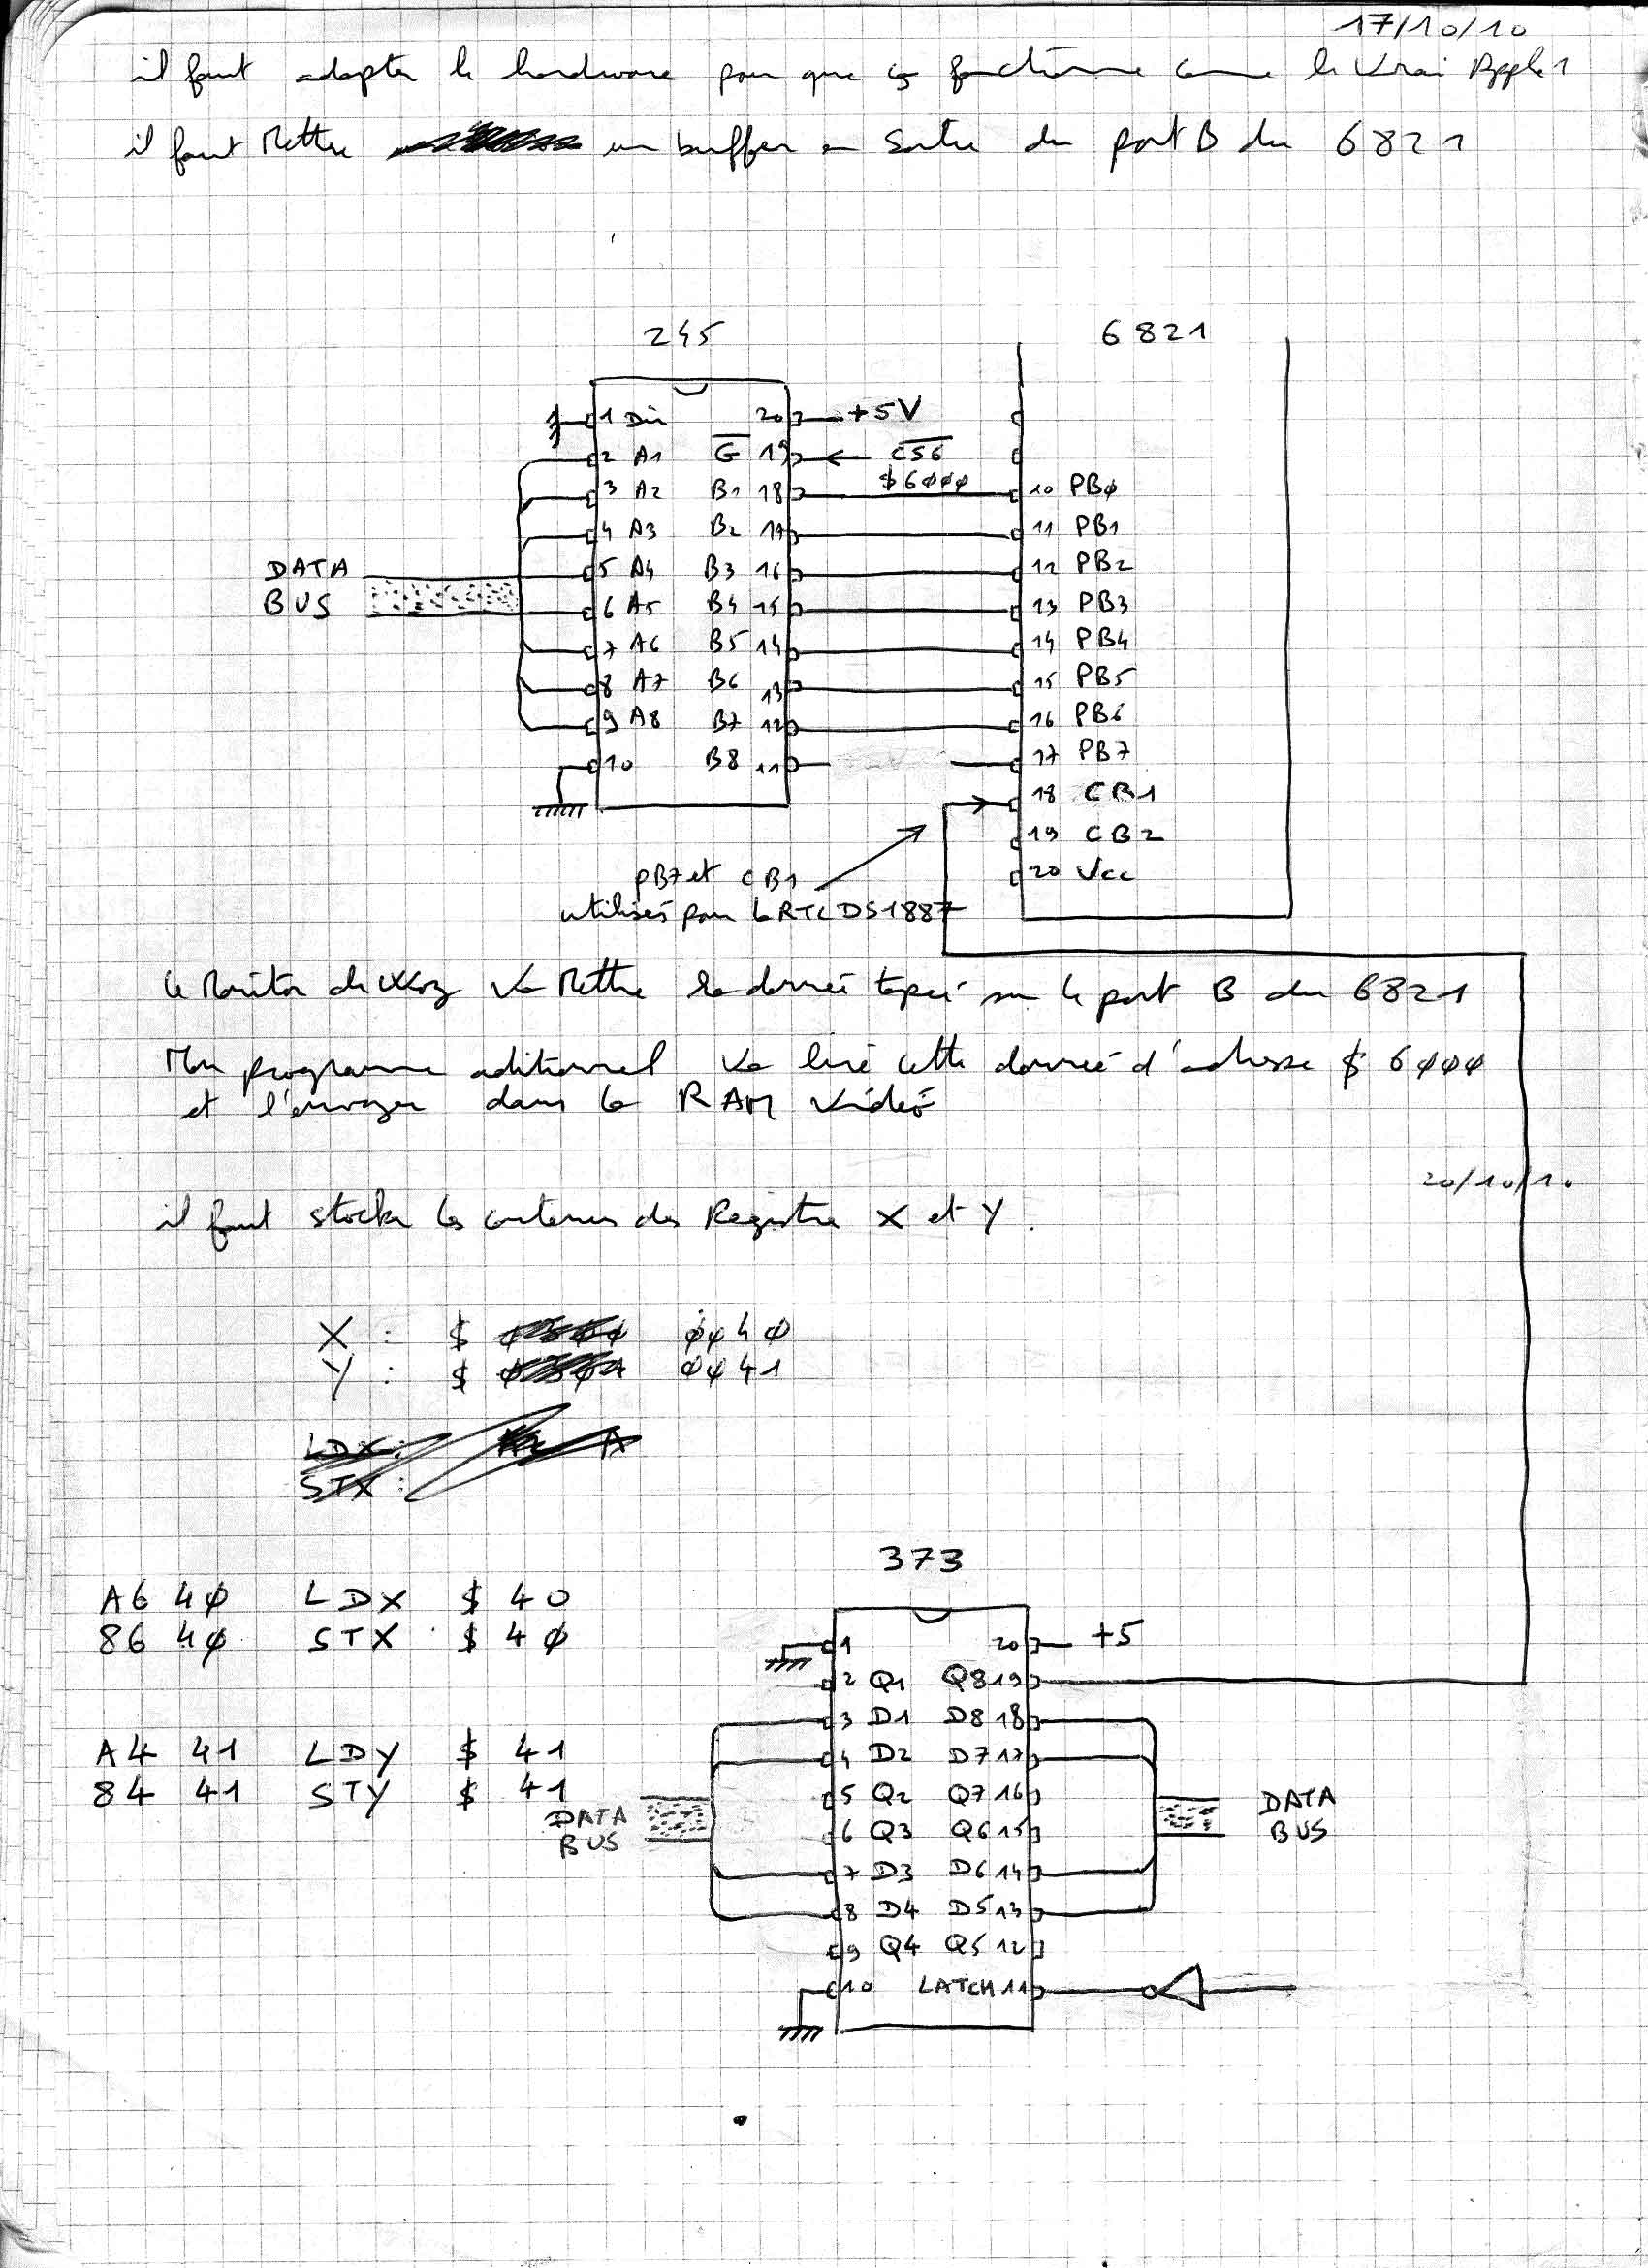 17/10/10
il faut adapter le hardware pour que ça fonctionne comme le vrai Apple 1
il faut Mettre un buffer en sortie du port B du 6821
245
6821
1 Dir 20 +5V
2 A1 G 19 CS6
$6000
3 A2 B1 18 10 PB0
4 A3 B2 17 11 PB1
5 A4 B3 16 12 PB2
DATA
BUS
6 A5 B4 15 13 PB3
7 A6 B5 14 14 PB4
8 A7 B6 13 15 PB5
9 A8 B7 12 16 PB6
10 B8 11 17 PB7
18 CB1
19 CB2
20 Vcc
PB7 et CB1
utilisés pour le RTC DS1887
le Monitor de Woz va Mettre la donnée tapée sur le port B du 6821
Mon programme aditionnel va lire cette donnée d'adresse $ 6000
et l'envoyer dans la RAM vidéo
20/10/10
il faut stocker les contenus des Registres X et Y.
X : $ 0040
Y : $ 0041
LDX :
STX :
373
A6 40 LDX $ 40
86 40 STX $ 40
A4 41 LDY $ 41
84 41 STY $ 41
1 20 +5
2 Q1 Q8 19
3 D1 D8 18
4 D2 D7 17
5 Q2 Q7 16
6 Q3 Q6 15
7 D3 D6 14
8 D4 D5 13
9 Q4 Q5 12
10 LATCH 11
DATA
BUS
DATA
BUS